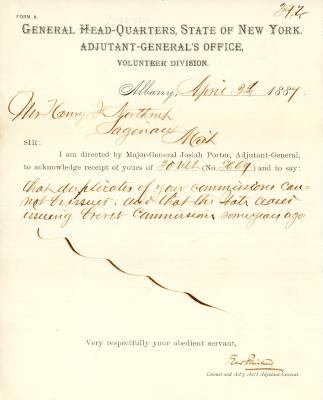 FORM A.
GENERAL HEAD-QUARTERS, STATE OF NEW YORK.
ADJUTANT-GENERAL'S OFFICE,
VOLUNTEER DIVISION.
Albany, April 2d 1887.
Mr Henry Northrup
Saginaw
Mich
SIR:
I am directed by Major-General Josiah Porter, Adjutant-General,
to acknowledge receipt of yours of 30 Ult (No. 3669) and to say:
that duplicates of your commissions can-
not be issued, and that the State ceased
issuing brevet Commissions some years ago
Very respectfully your obedient servant,
Colonel and Act'g Ass't Adjutant-General.